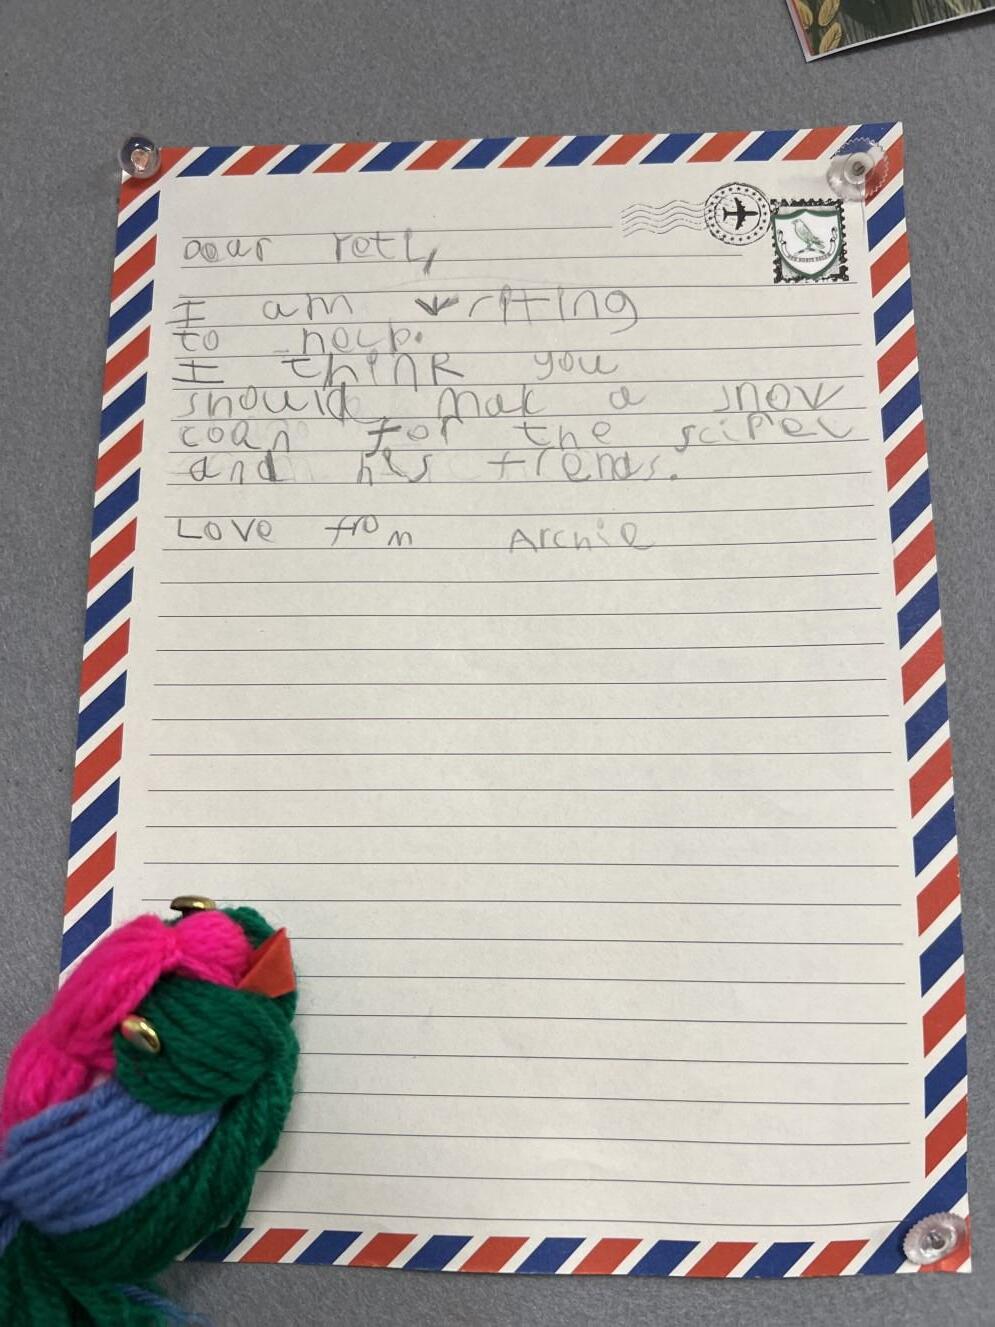 Dear Yeti,
I am writing
to help.
I think you
should mak a snow
coan for the sciPeu
and his frends.
Love from Archie